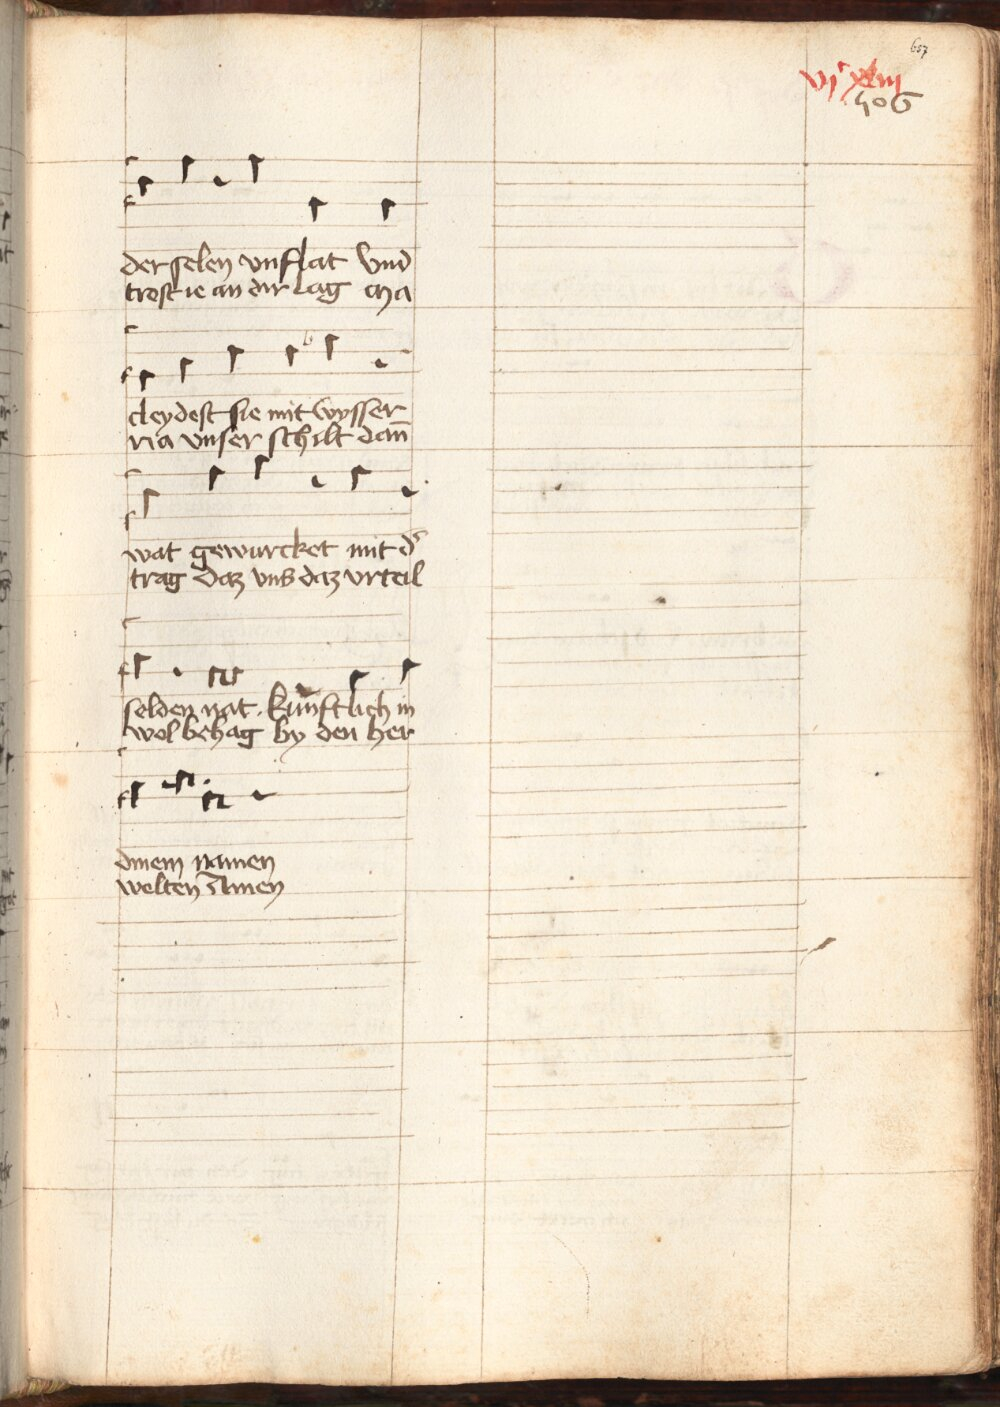 657
vjᶜ xliij
406
der selen vnflat Vnd
trost ie an dir lag Ma
cleydest sie mit wysser
ria vnser schilt dan̄
wat gewurcket mit d's
trag Daz vnß daz vrteil
selden nat. kunftlich in
wol behag by den her
dinem namen
welten Amen